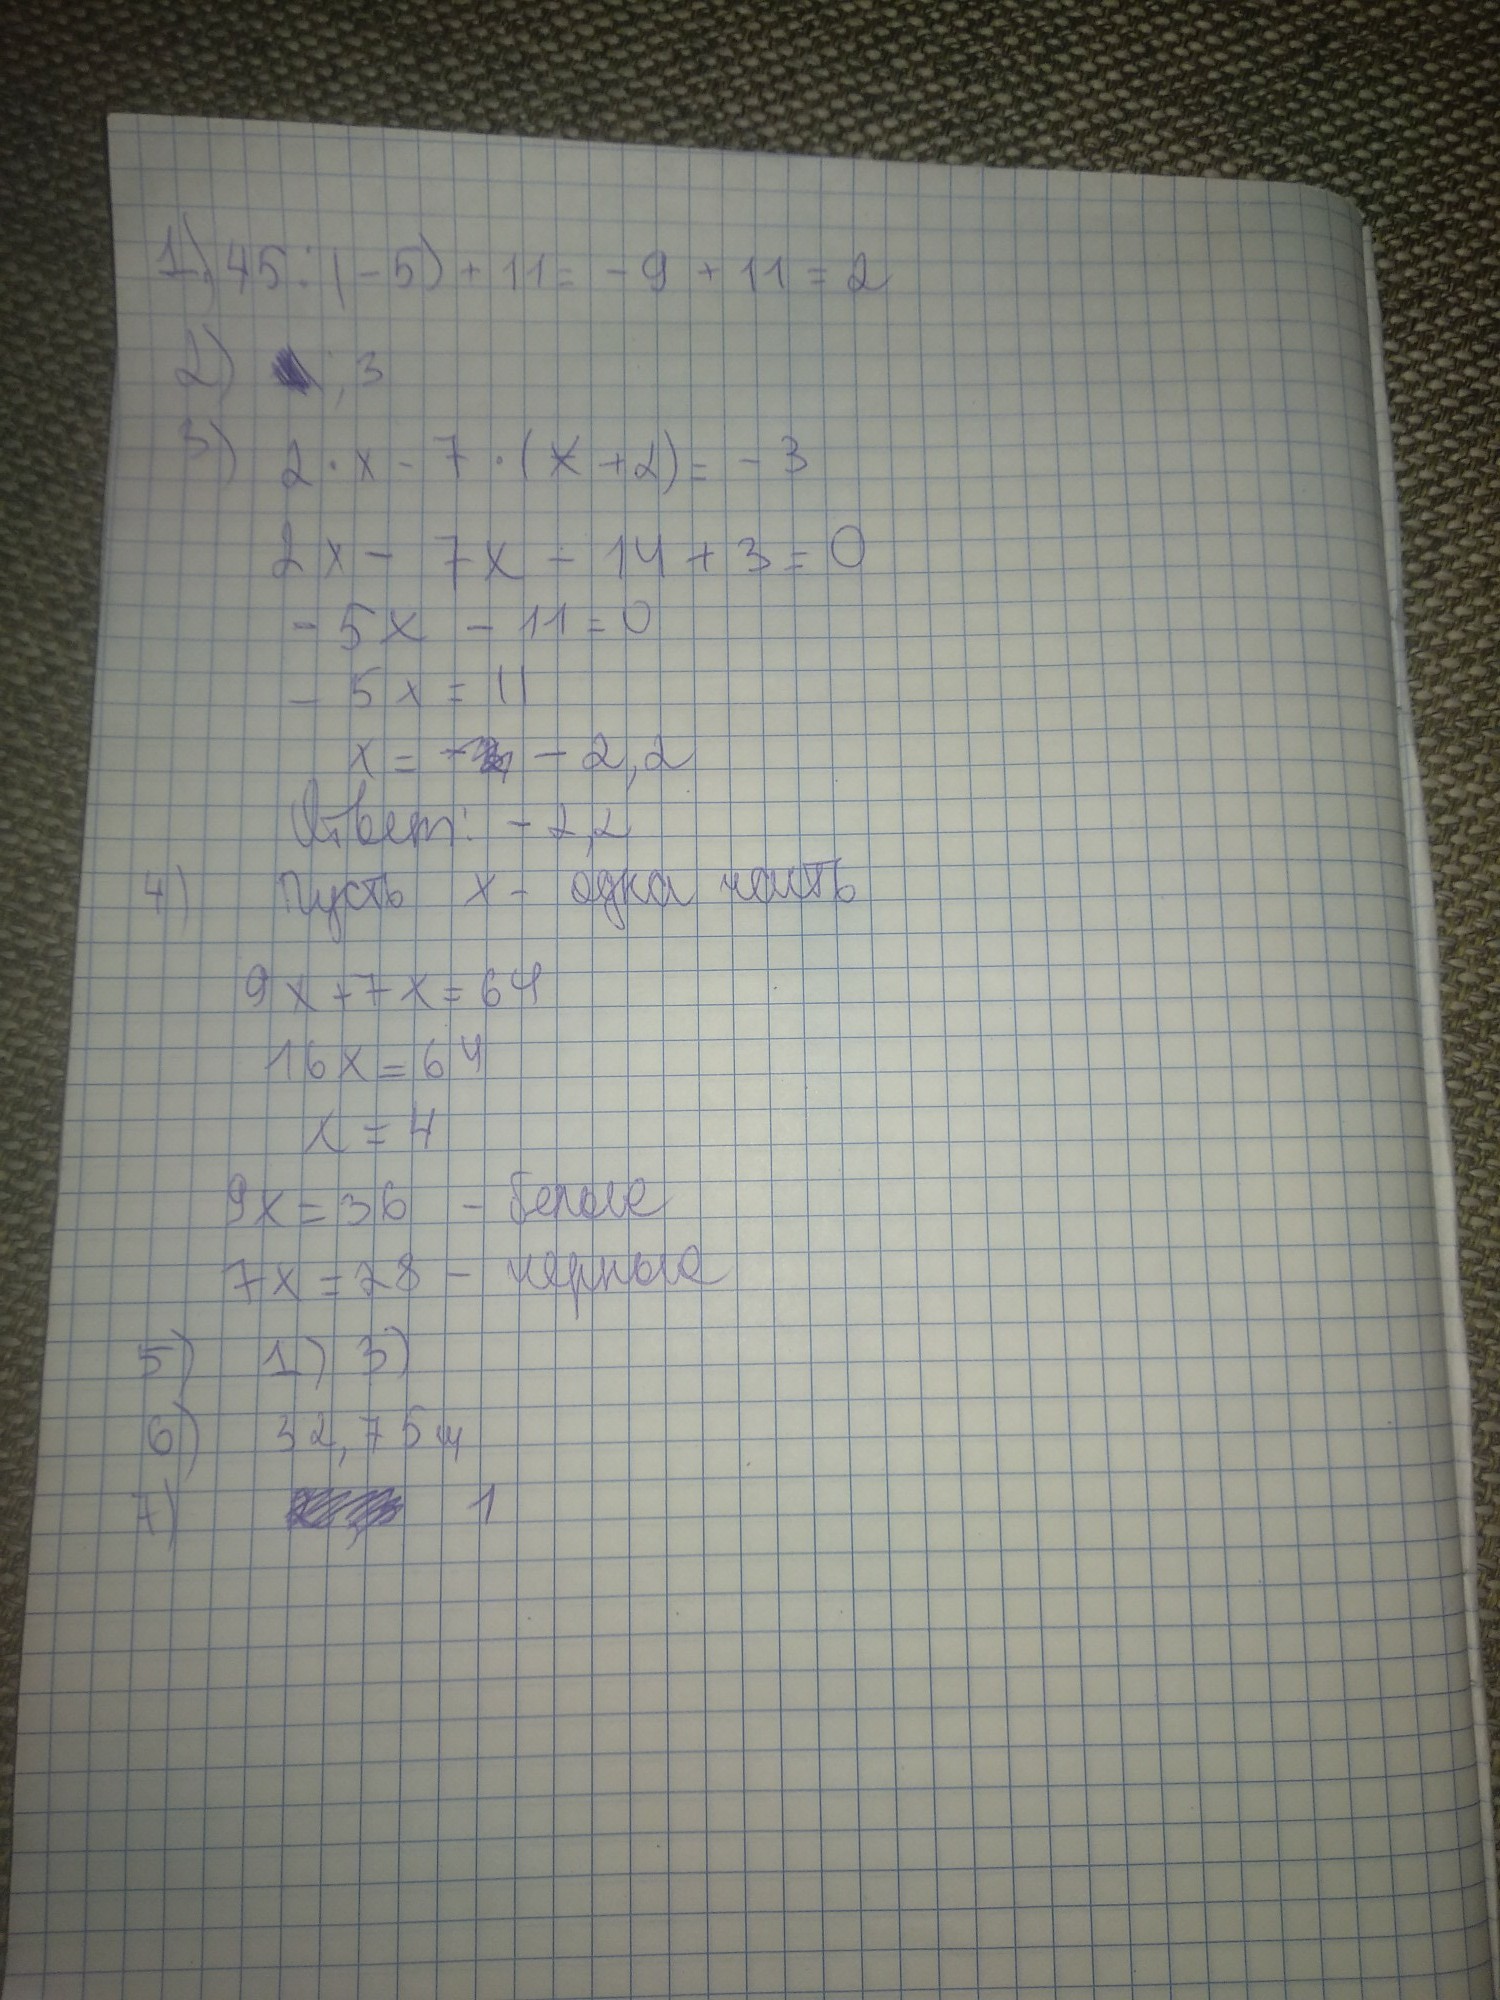 1) 45:(-5)+11=-9+11=2
2) ; 3
3) 2·x-7·(x+2)=-3
2x-7x-14+3=0
-5x-11=0
-5x=11
x= -2,2
Ответ: -2,2
4) Пусть x- одна часть
9x+7x=64
16x=64
x=4
9x=36 - белые
7x=28 - черные
5) 1) 3)
6) 32,75м
7) 1